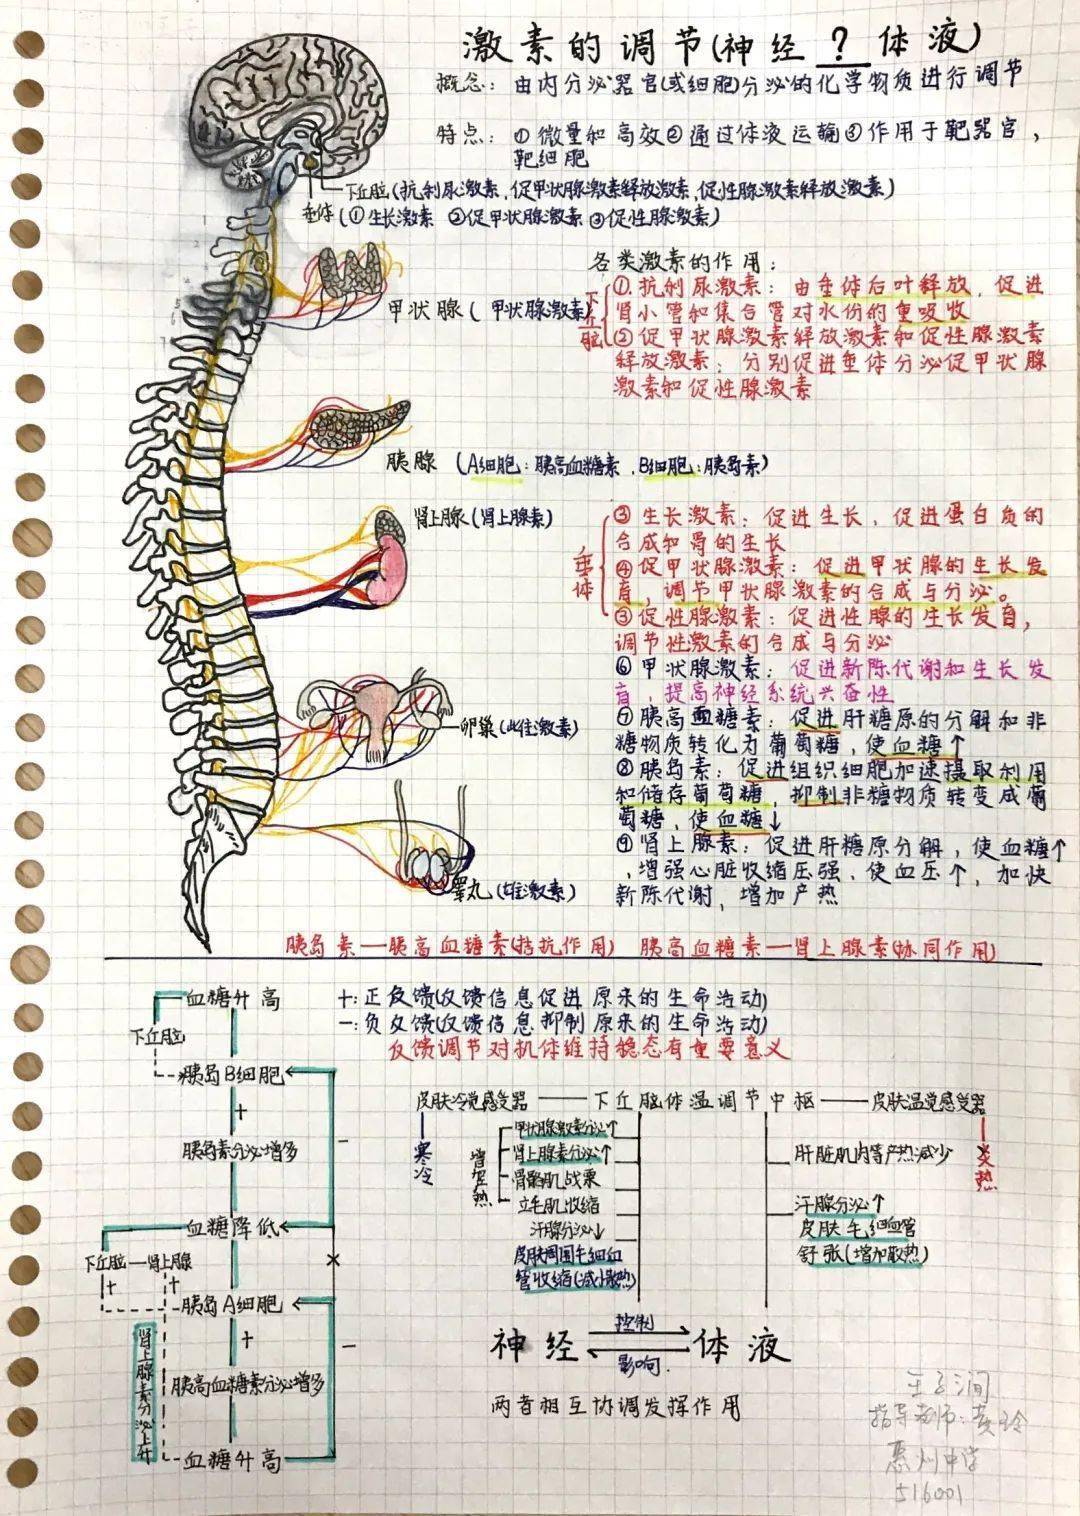 激素的调节(神经 ? 体液)
概念: 由内分泌器官(或细胞)分泌的化学物质进行调节
特点: ①微量和高效②通过体液运输③作用于靶器官,
靶细胞
下丘脑(抗利尿激素,促甲状腺激素释放激素,促性腺激素释放激素)
垂体(①生长激素 ②促甲状腺激素 ③促性腺激素)
甲状腺(甲状腺激素)
胰腺 (A细胞:胰高血糖素,B细胞:胰岛素)
肾上腺(肾上腺素)
卵巢(雌性激素)
睾丸(雄激素)
各类激素的作用:
下丘脑
①抗利尿激素:由垂体后叶释放,促进
肾小管和集合管对水份的重吸收
②促甲状腺激素释放激素和促性腺激素
释放激素:分别促进垂体分泌促甲状腺
激素和促性腺激素
垂体
③生长激素:促进生长,促进蛋白质的
合成和骨的生长
④促甲状腺激素:促进甲状腺的生长发
育,调节甲状腺激素的合成与分泌。
③促性腺激素:促进性腺的生长发育,
调节性激素的合成与分泌
⑥甲状腺激素:促进新陈代谢和生长发
育,提高神经系统兴奋性
⑦胰高血糖素:促进肝糖原的分解和非
糖物质转化为葡萄糖,使血糖↑
⑧胰岛素:促进组织细胞加速摄取利用
和储存葡萄糖,抑制非糖物质转变成葡
萄糖,使血糖↓
⑨肾上腺素:促进肝糖原分解,使血糖↑
,增强心脏收缩压强,使血压↑,加快
新陈代谢,增加产热
胰岛素—胰高血糖素(拮抗作用) 胰高血糖素—肾上腺素(协同作用)
血糖升高
下丘脑
胰岛B细胞
+
胰岛素分泌增多
—
血糖降低
下丘脑—肾上腺
+ +
胰岛A细胞
+
—
胰高血糖素分泌增多
肾上腺素分泌上升
血糖升高
+:正反馈(反馈信息促进原来的生命活动)
—:负反馈(反馈信息抑制原来的生命活动)
反馈调节对机体维持稳态有重要意义
皮肤冷觉感受器——下丘脑体温调节中枢——皮肤温觉感受器
寒冷
增加产热
甲状腺激素分泌↑
肾上腺素分泌↑
骨骼肌战栗
立毛肌收缩
汗腺分泌↓
皮肤周围毛细血
管收缩(减小散热)
炎热
肝脏肌肉等产热减少
汗腺分泌↑
皮肤毛细血管
舒张(增加散热)
神经 控制 体液
影响.
两者相互协调发挥作用
指导老师:龚玲
惠州中学
516001